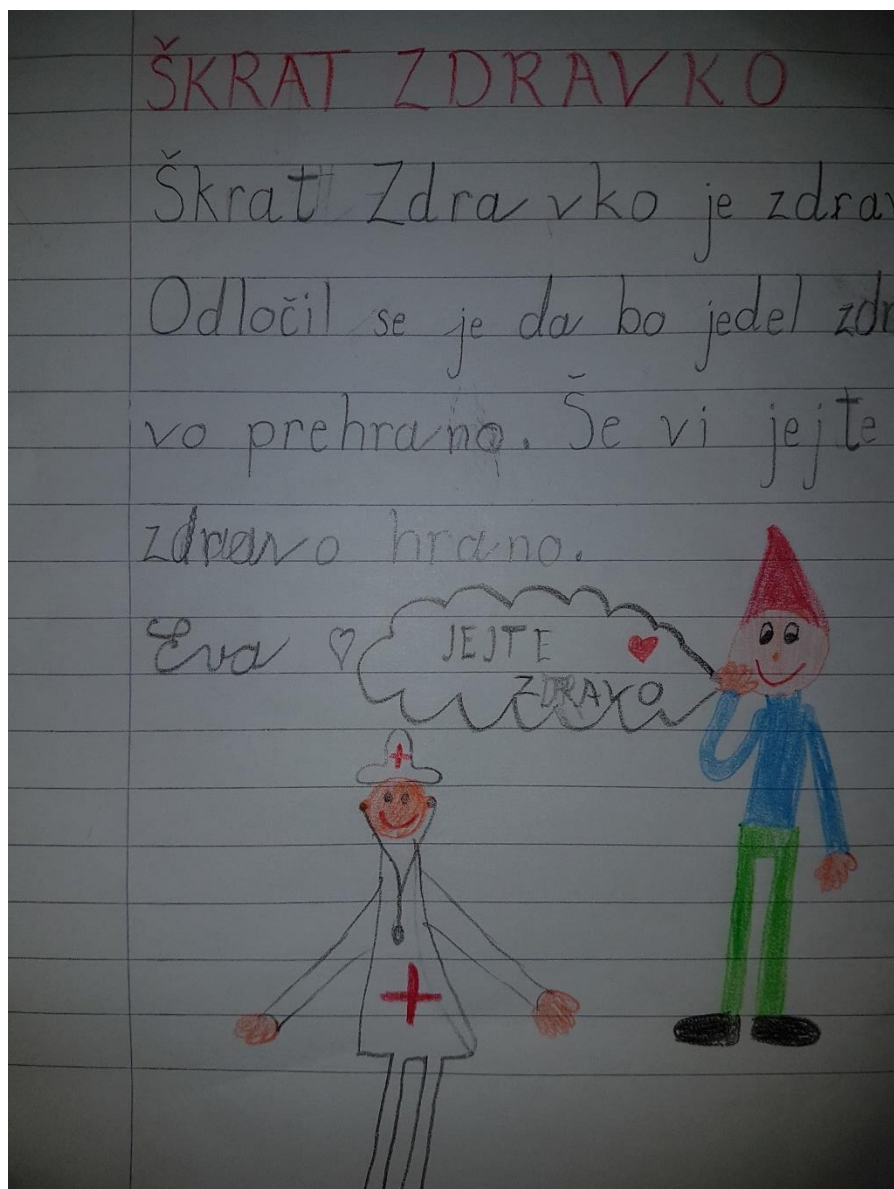 ŠKRAT ZDRAVKO
Škrat Zdravko je zdrav
Odločil se je da bo jedel zdr
vo prehrano. Še vi jejte
zdravo hrano.
Eva
JEJTE
ZDRAVO